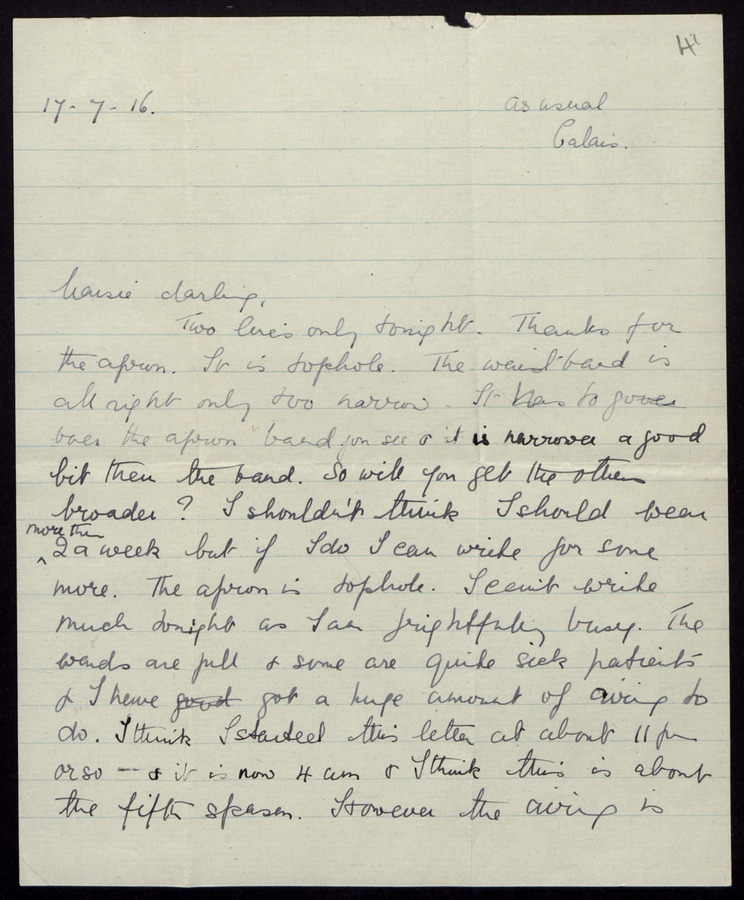 41
17-7-16.
as usual
Calais.
Maisie darling,
Two lines only tonight. Thanks for
the apron. It is tophole. The waistband is
all right only too narrow. It has to go over
the apron band you see & it is narrower a good
bit then the band. So will you get the others
broader? I shouldn't think I should wear
more then
^ 2 a week but if I do I can write for some
more. The apron is tophole. I can't write
much tonight as I am frightfully busy. The
wards are full & some are quite sick patients
& I have good got a huge amount of airing to
do. I think I started this letter at about 11 pm
or so — & it is now 4 am & I think this is about
the fifth spasm. However the airing is